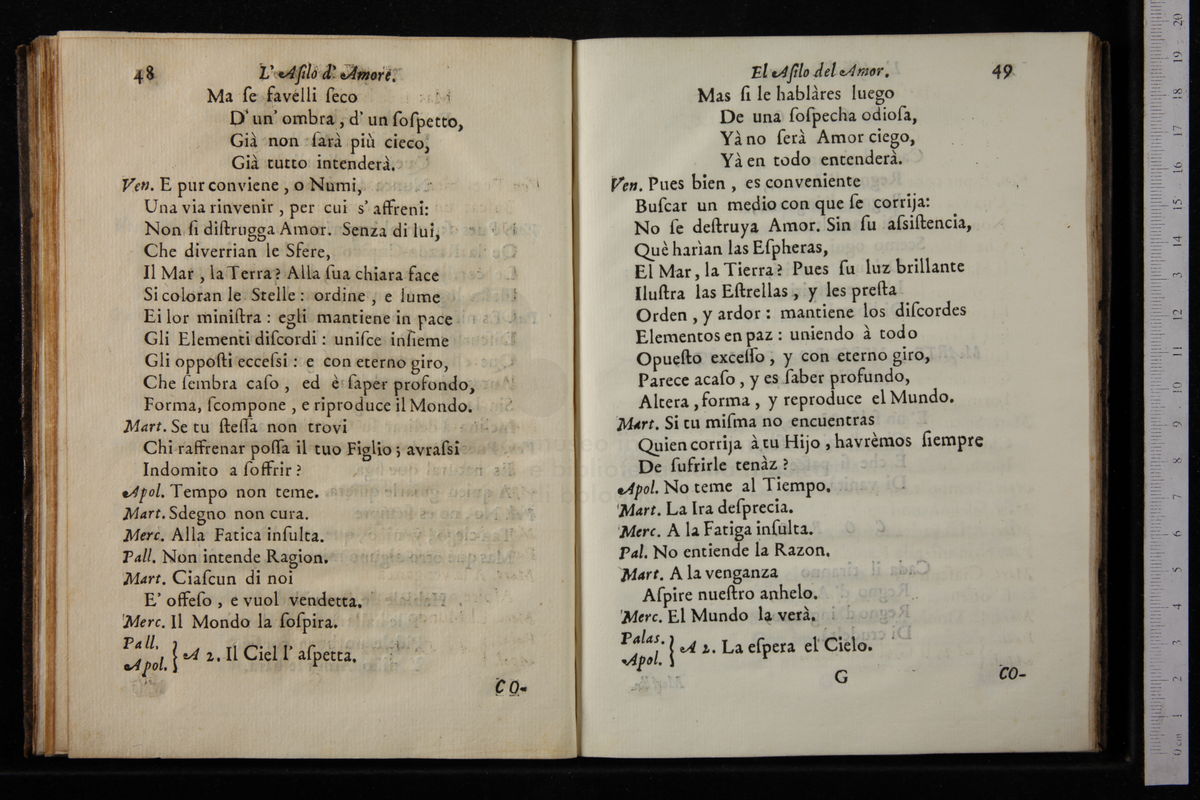 48
L' Aſilo d' Amore.
Ma ſe favelli ſeco
D' un' ombra , d' un ſoſpetto,
Già non ſarà più cieco,
Già tutto intenderà.
Ven. E pur conviene , o Numi,
Una via rinvenir , per cui s' affreni:
Non ſi diſtrugga Amor. Senza di lui,
Che diverrian le Sfere,
Il Mar , la Terra? Alla ſua chiara face
Si coloran le Stelle : ordine , e lume
Ei lor miniſtra : egli mantiene in pace
Gli Elementi diſcordi : uniſce inſieme
Gli oppoſti ecceſsi : e con eterno giro,
Che ſembra caſo , ed è ſaper profondo,
Forma, ſcompone , e riproduce il Mondo.
Mart. Se tu ſteſſa non trovi
Chi raffrenar poſſa il tuo Figlio ; avraſsi
Indomito a ſoffrir ?
Apol. Tempo non teme.
Mart. Sdegno non cura.
Merc. Alla Fatica inſulta.
Pall. Non intende Ragion.
Mart. Ciaſcun di noi
E' offeſo , e vuol vendetta.
Merc. Il Mondo la ſoſpira.
Pall.
Apol. } A 2. Il Ciel l' aſpetta.
CO-
El Aſilo del Amor.
49
Mas ſi le hablàres luego
De una ſoſpecha odioſa,
Yà no ſerà Amor ciego,
Yà en todo entenderà.
Ven. Pues bien , es conveniente
Buſcar un medio con que ſe corrija:
No ſe deſtruya Amor. Sin ſu aſsiſtencia,
Què harìan las Eſpheras,
El Mar, la Tierra? Pues ſu luz brillante
Iluſtra las Eſtrellas , y les preſta
Orden , y ardor : mantiene los diſcordes
Elementos en paz : uniendo à todo
Opueſto exceſſo , y con eterno giro,
Parece acaſo , y es ſaber profundo,
Altera , forma , y reproduce el Mundo.
Mart. Si tu miſma no encuentras
Quien corrija à tu Hijo , havrèmos ſiempre
De ſufrirle tenàz ?
Apol. No teme al Tiempo.
Mart. La Ira deſprecia.
Merc. A la Fatiga inſulta.
Pal. No entiende la Razon.
Mart. A la venganza
Aſpire nueſtro anhelo.
Merc. El Mundo la verà.
Palas.
Apol. } A 2. La eſpera el Cielo.
G
CO-